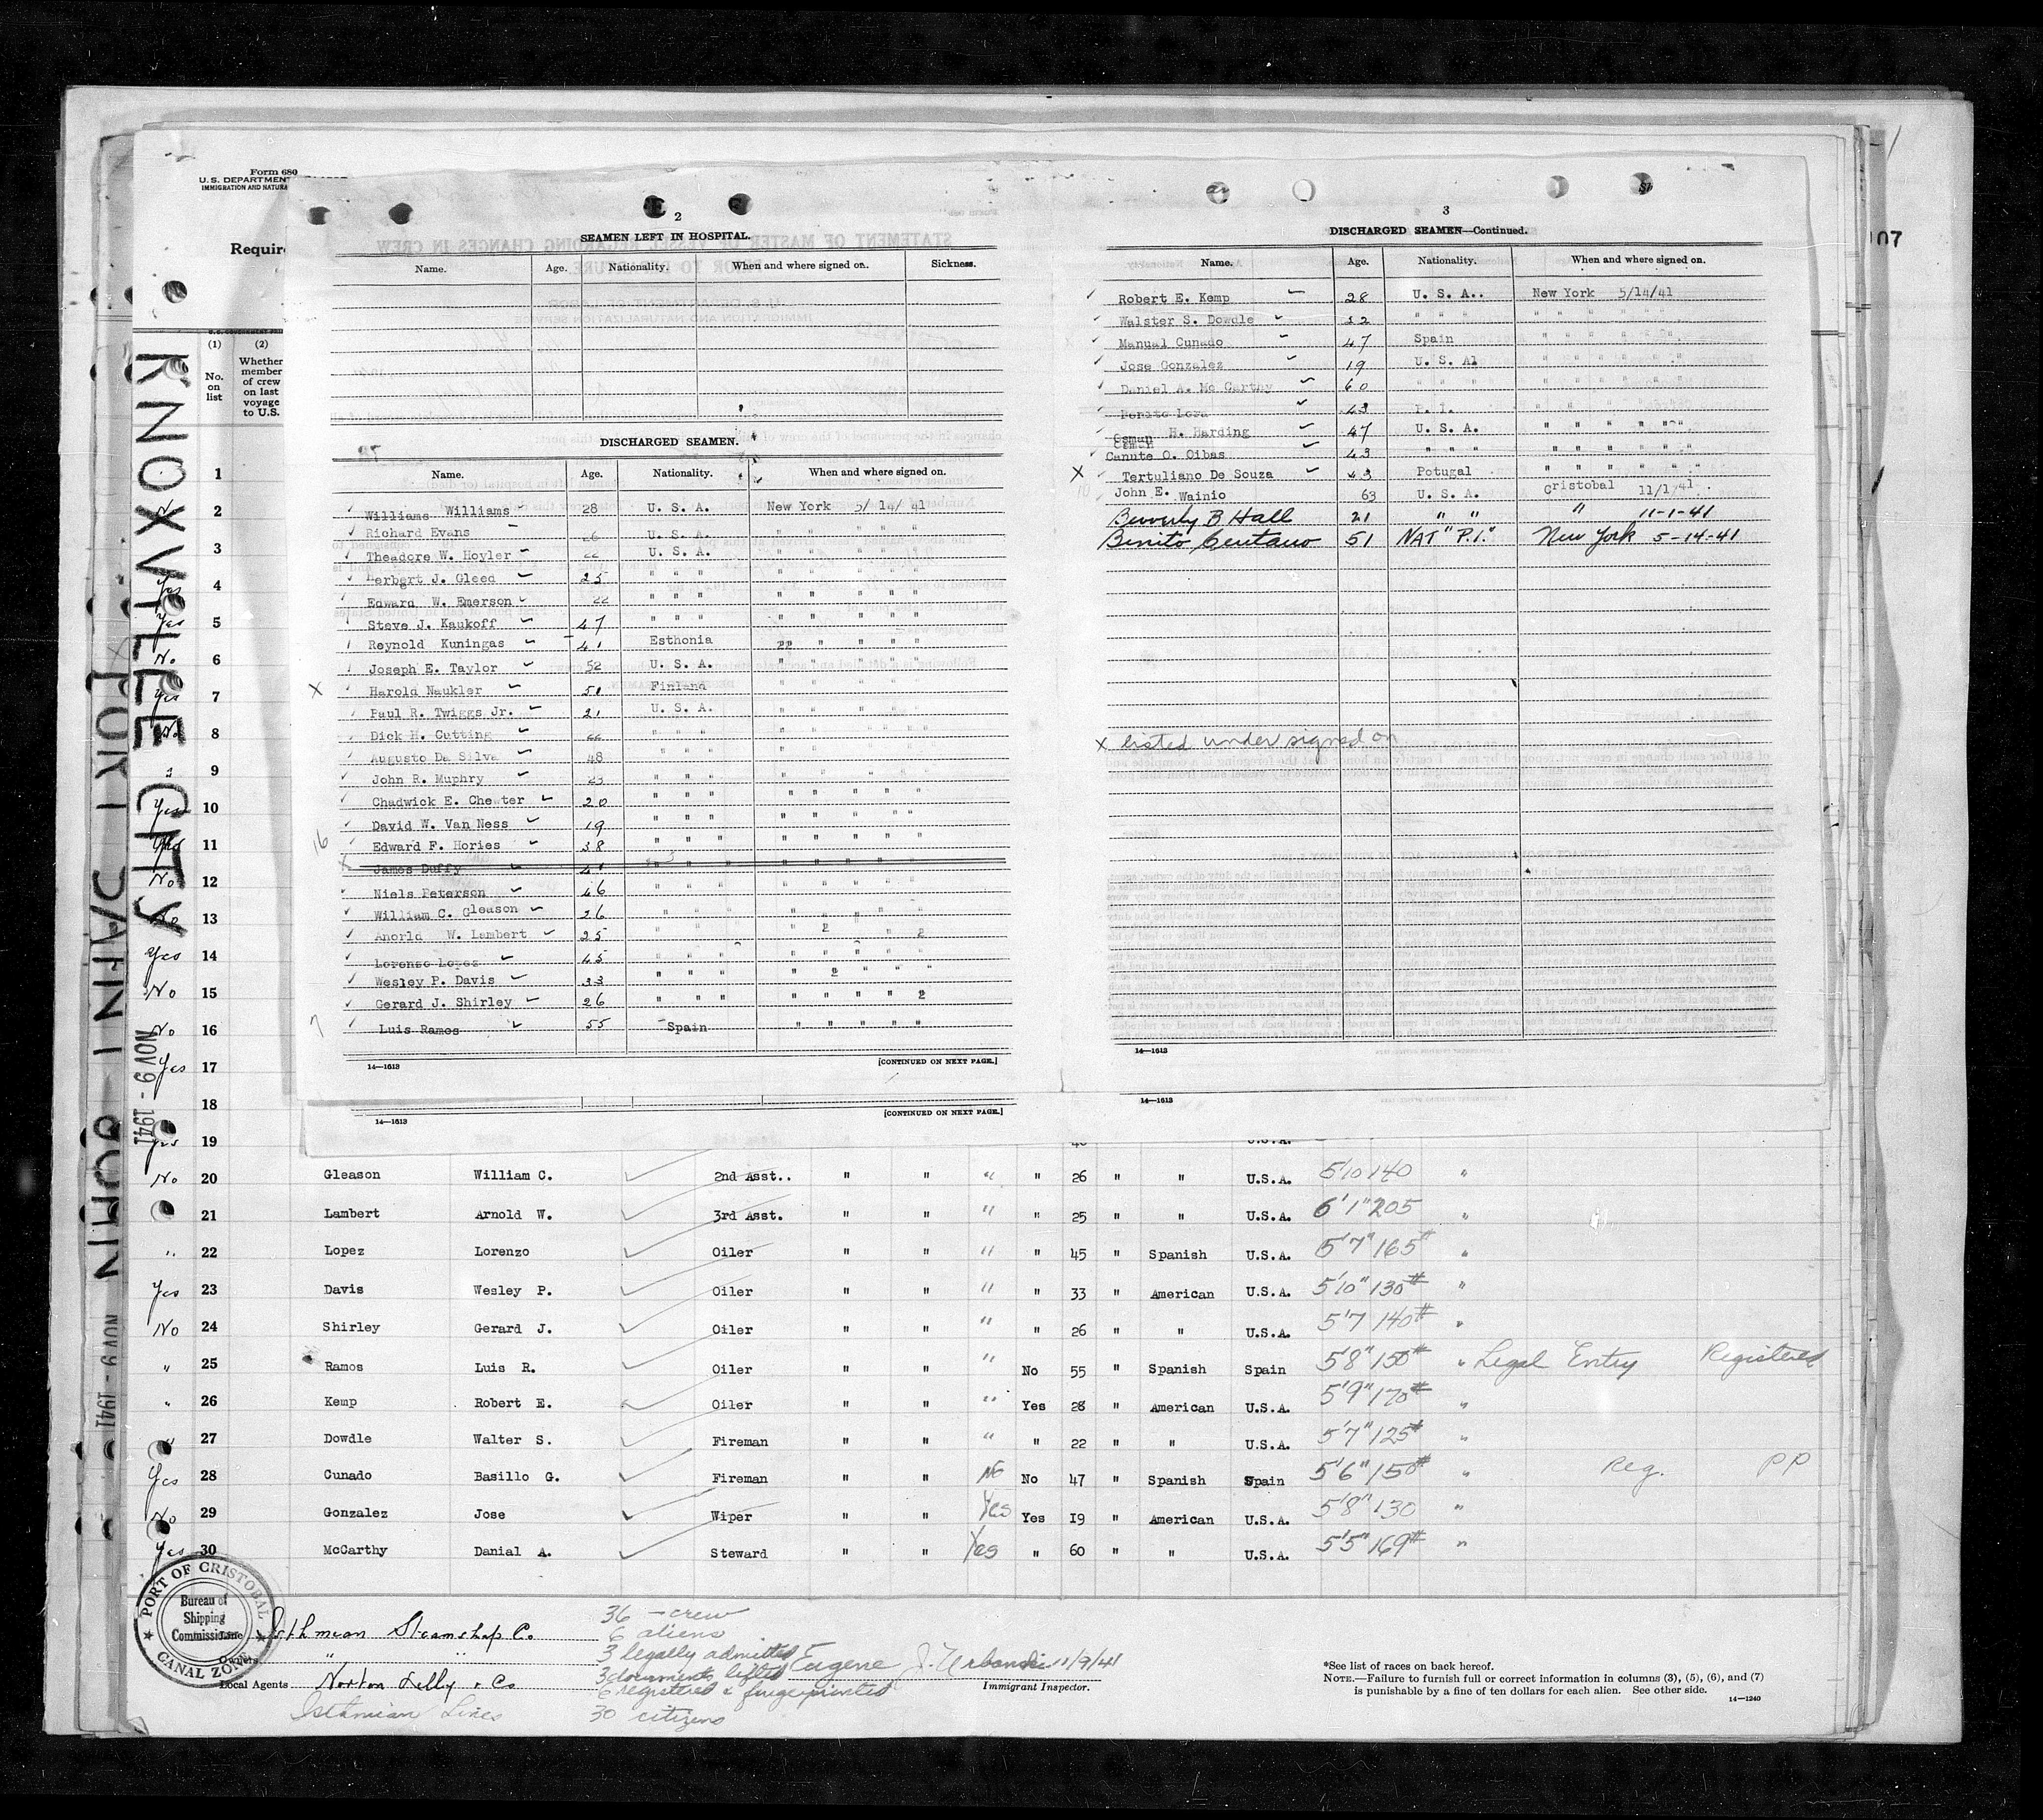 Form 680
U. S. DEPARTMENT
IMMIGRATION AND NATURA
Require
107
KNOXVILLE CITY
NOV 9 - 1941
NOV 9 - 1941
(1) (2)
No. on list
Whether member of crew on last voyage to U.S.
2
SEAMEN LEFT IN HOSPITAL.
Name. Age. Nationality. When and where signed on. Sickness.
DISCHARGED SEAMEN.
Name. Age. Nationality. When and where signed on.
Williams Williams 28 U. S. A. New York 5/ 14/ 41
Richard Evans 26 U. S. A. " " " " "
Theadore W. Hoyler 22 U. S. A. " " " " "
Herbert J. Gleed 25 " " " " " " " "
Edward W. Emerson 22 " " " " " " " "
Steve J. Kaukoff 47 " " " " " " " "
Reynold Kuningas 41 Esthonia " " " " "
Joseph E. Taylor 52 U. S. A. " " " " "
X Harold Naukler 51 Finland " " " " "
Paul R. Twiggs Jr. 21 U. S. A. " " " " "
Dick H. Cutting 22 " " " " " " " "
Augusto Da Silva 48 " " " " " " " "
John R. Muphry 23 " " " " " " " "
Chadwick E. Chewter 20 " " " " " " " "
David W. Van Ness 19 " " " " " " " "
16 Edward F. Hories 38 " " " " " " " "
James Duffy 41 " " " " " " " "
Niels Peterson 46 " " " " " " " "
William C. Gleason 26 " " " " " " " "
Anorld W. Lambert 25 " " " " " " "
Lorenzo Lopez 45 " " " " " " " "
Wesley P. Davis 33 " " " " " " "
Gerard J. Shirley 26 " " " " " " "
7 Luis Ramos 55 Spain " " " " "
14—1613 [CONTINUED ON NEXT PAGE.]
14—1613 [CONTINUED ON NEXT PAGE.]
3
DISCHARGED SEAMEN—Continued.
Name. Age. Nationality. When and where signed on.
Robert E. Kemp 28 U. S. A.. New York 5/14/41
Walster S. Dowdle 22 " " " " " " " "
Manual Cunado 47 Spain " " " " "
Jose Gonzalez 19 U. S. A. " " " " "
Daniel A. Mc Carthy 60 " " " " " " " "
Benito Lora 43 P. I. " " " " "
Osmun H. Harding 47 U. S. A. " " " " "
Canute O. Oibas 43 " " " " " " " "
X Tertuliano De Souza 43 Potugal " " " " " "
10 John E. Wainio 63 U. S. A. Cristobal 11/1/41.
Beverly B Hall 21 " " " 11-1-41
Benito Centano 51 NAT "P.I." New York 5-14-41
X listed under signed on
14—1613
14—1613
1
2
3
Yes 4
Yes 5
No 6
Yes 7
No 8
" 9
Yes 10
11
No 12
No 13
Yes 14
No 15
No 16
Yes 17
18
Yes 19 U.S.A.
No 20 Gleason William C. 2nd Asst.. " " " " 26 " " U.S.A. 5'10 140 "
21 Lambert Arnold W. 3rd Asst. " " " " 25 " " U.S.A. 6'1" 205 "
" 22 Lopez Lorenzo Oiler " " " " 45 " Spanish U.S.A. 5'7" 165# "
Yes 23 Davis Wesley P. Oiler " " " " 33 " American U.S.A. 5'10" 130# "
No 24 Shirley Gerard J. Oiler " " " " 26 " " U.S.A. 5'7 140# "
" 25 Ramos Luis R. Oiler " " " No 55 " Spanish Spain 5'8" 150# " Legal Entry Registered
" 26 Kemp Robert E. Oiler " " " Yes 28 " American U.S.A. 5'9" 170# "
" 27 Dowdle Walter S. Fireman " " " " 22 " " U.S.A. 5'7" 125# "
Yes 28 Cunado Basillo G. Fireman " " No No 47 " Spanish Spain 5'6" 150# " Reg. PP
No 29 Gonzalez Jose Wiper " " Yes Yes 19 " American U.S.A. 5'8" 130 "
Yes 30 McCarthy Danial A. Steward " " Yes " 60 " " U.S.A. 5'5" 169# "
PORT OF CRISTOBAL
Bureau of Shipping Commissioner
CANAL ZONE
Isthmian Steamship Co
Owners " "
Local Agents Norton Lilly & Co
Isthmian Lines
36 - crew
6 aliens
3 legally admitted
3 documents lifted
6 registered & fingerprinted
30 citizens
Eugene J. Urbanski 11/9/41
Immigrant Inspector.
*See list of races on back hereof.
NOTE.—Failure to furnish full or correct information in columns (3), (5), (6), and (7)
is punishable by a fine of ten dollars for each alien. See other side.
14—1240